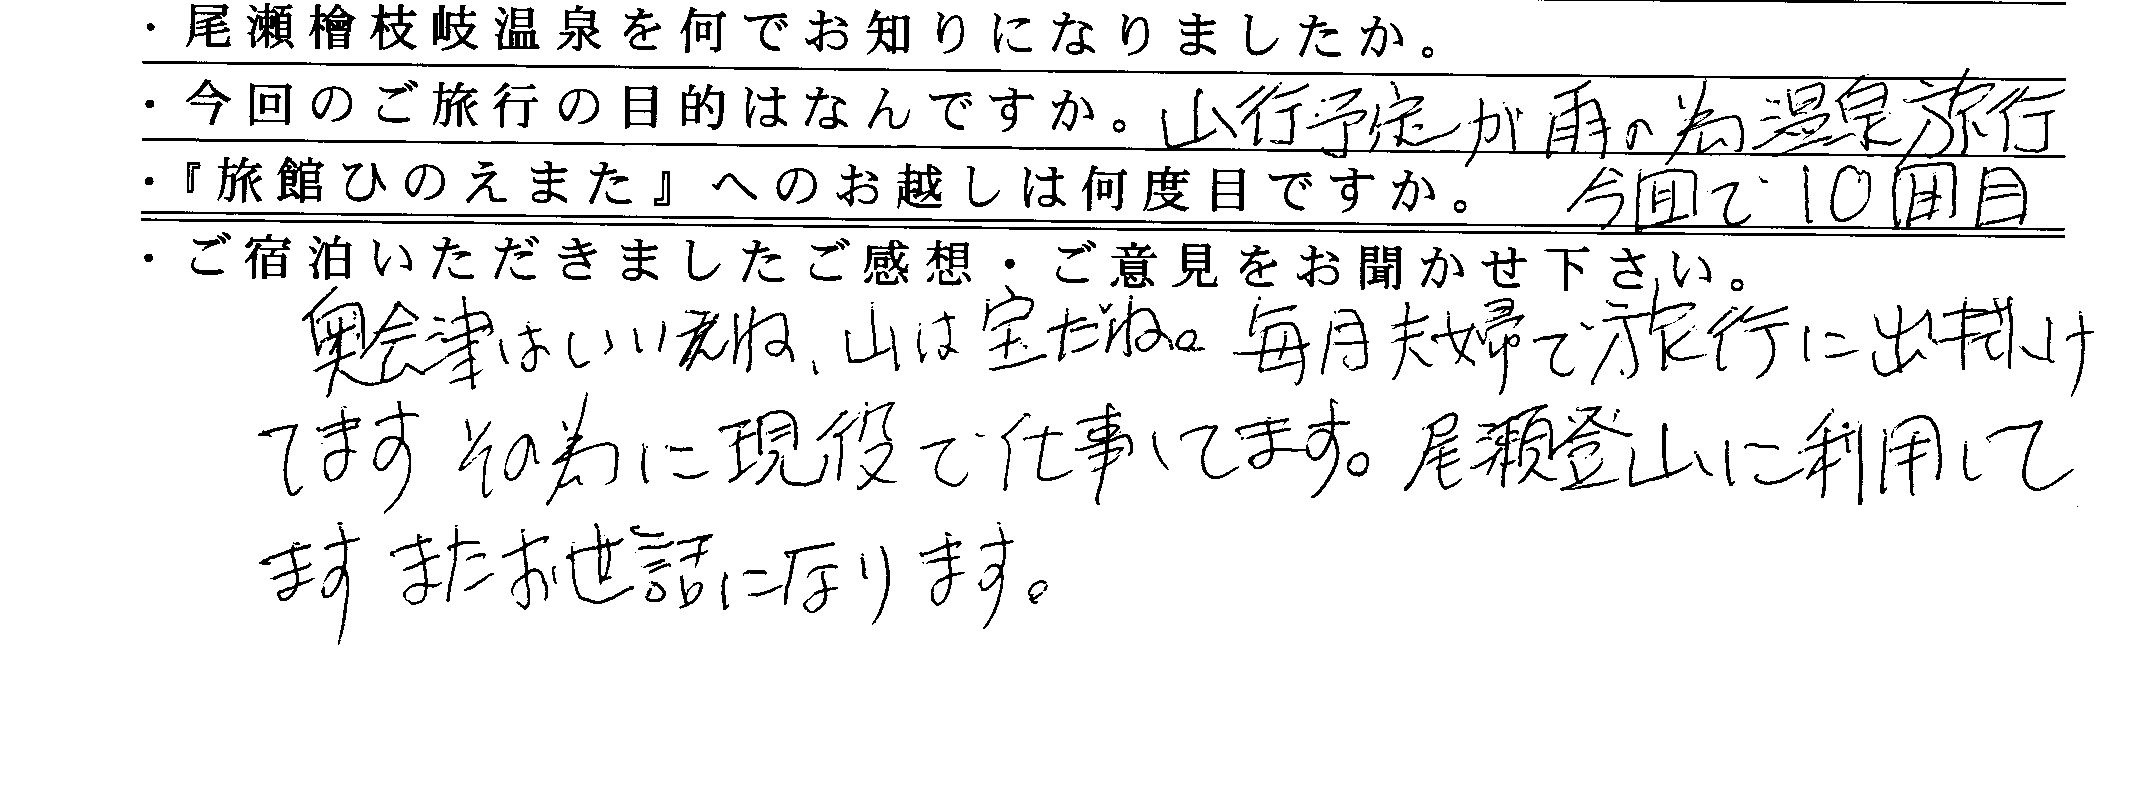 ・尾瀬檜枝岐温泉を何でお知りになりましたか。
・今回のご旅行の目的はなんですか。山行予定が雨の為温泉旅行
・『旅館ひのえまた』へのお越しは何度目ですか。 今回で10回目
・ご宿泊いただきましたご感想・ご意見をお聞かせ下さい。
奥会津はいいえね、山は宝だね。毎月夫婦で旅行に出掛け
てます その為に現役で仕事してます。尾瀬登山に利用して
ます またお世話になります。